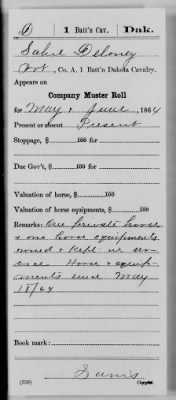 D | 1 Batt'n Cav. | Dak.
Deloney
Pvt, Co. A, 1 Batt'n Dakota Cavalry.
Appears on
Company Muster Roll
for May & June, 1864
Present or absent Present
Stoppage, $ 100 for
Due Gov't, $ 100 for
Valuation of horse, $ 100
Valuation of horse equipments, $ 100
Remarks: One private horse
& one horse equipments
owned & kept in ser-
vice Horse & equip-
ments since May
18/64
Book mark:
(358)
Copyist.